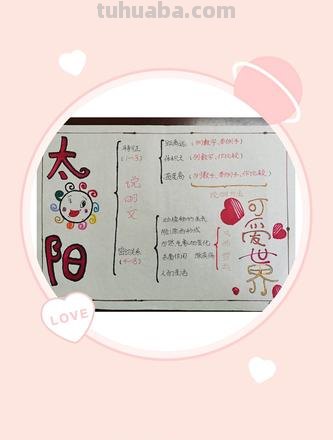 tuhuaba.com
太阳
特征
(1-3)
说明文
距离远 (列数字、举例子)
体积大 (列数字、作比较)
温度高 (列数字、举例子、作比较)
说明方法
密切关系
(4-8)
动植物的生长
煤炭的形成
自然气象的变化
杀菌作用
人们生活
可爱世界
LOVE